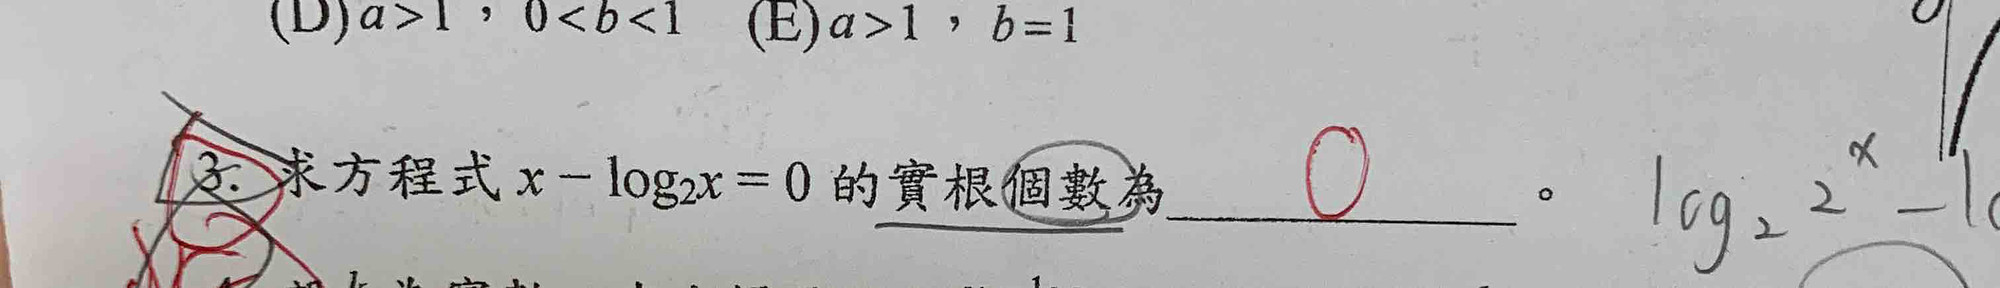 (D) a > 1 , 0 < b < 1 (E) a > 1 , b = 1
3. 求方程式 x − log₂x = 0 的實根個數為 0 。 log₂ 2ˣ −